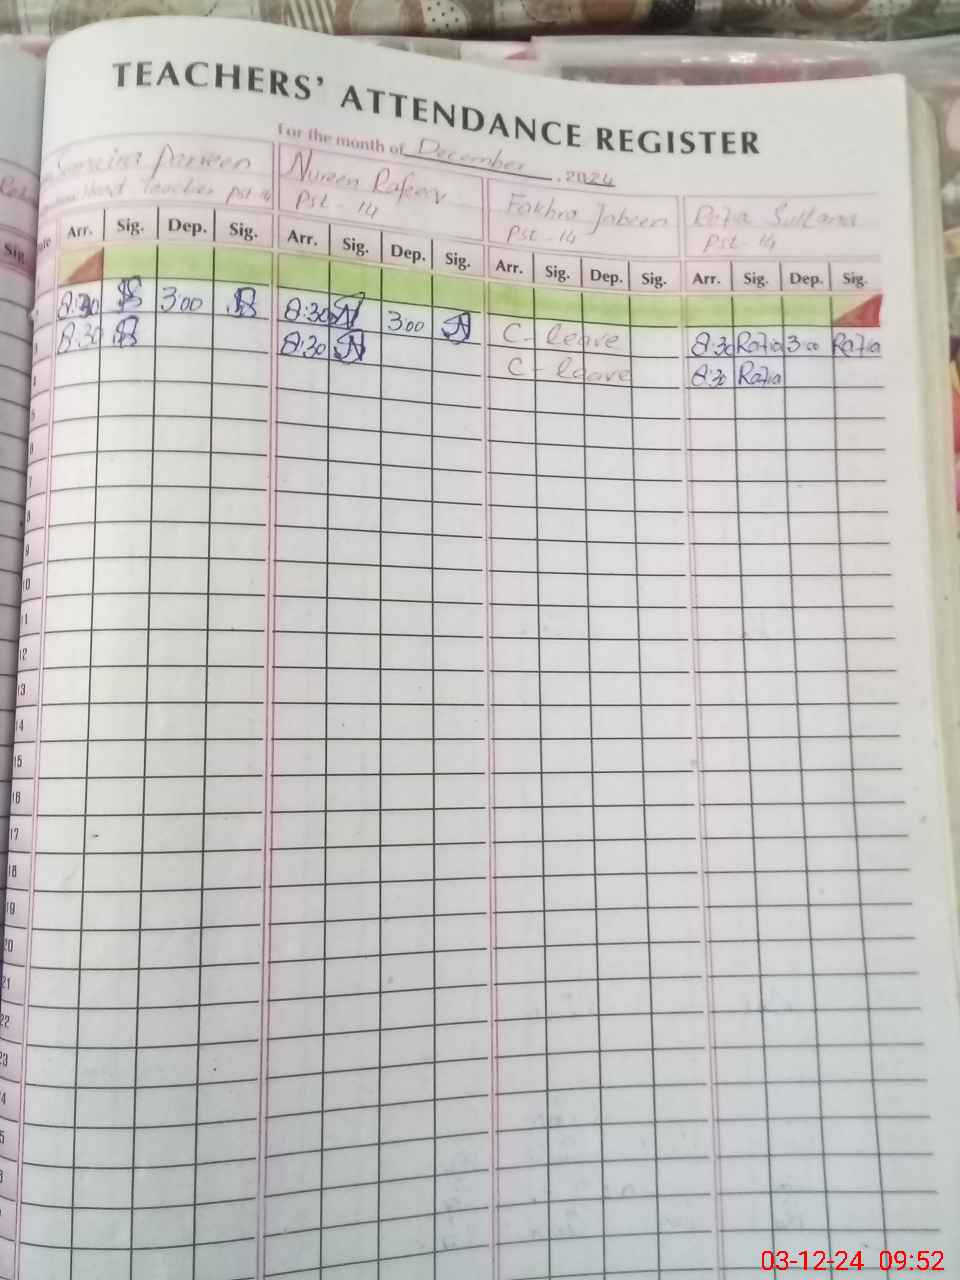 TEACHERS' ATTENDANCE REGISTER
For the month of December, 2024
Parveen Nureen Fakhra Jabeen Razia Sultana
Head Teacher PST-14 PST-14 PST-14 PST-14
Sig. Arr. Sig. Dep. Sig. Arr. Sig. Dep. Sig. Arr. Sig. Dep. Sig. Arr. Sig. Dep. Sig.
8:30 3:00 8:30 3:00 C-leave 8:30 Razia 3:00 Razia
8:30 8:30 C-leave 8:30 Razia
5
6
7
8
9
10
11
12
13
14
15
16
17
18
19
20
21
22
23
03-12-24 09:52